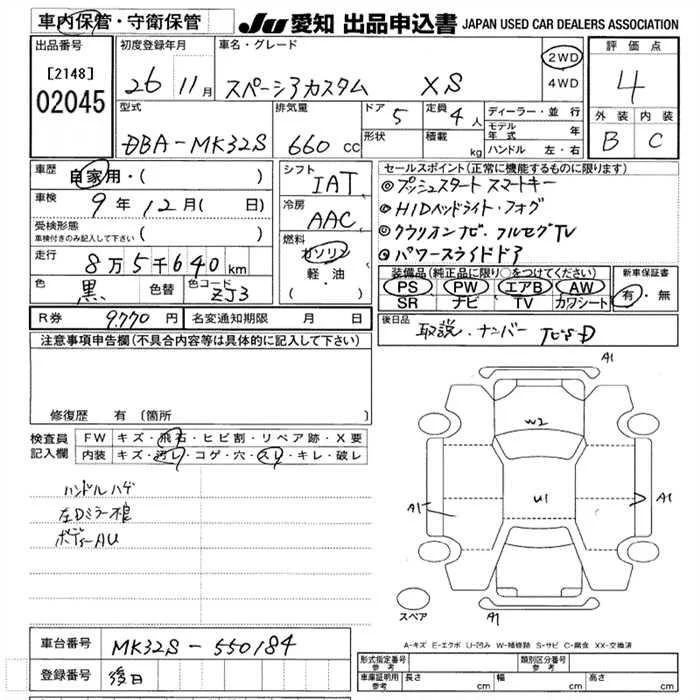 車内保管・守衛保管
JU 愛知 出品申込書 JAPAN USED CAR DEALERS ASSOCIATION
出品番号
[2148]
02045
初度登録年月
26 11月
車名・グレード
スペーシアカスタム XS
2WD
4WD
評価点
4
外装 内装
B C
型式
DBA-MK32S
排気量
660 cc
ドア
5
定員
4人
形状
積載
kg
ディーラー・並行
モデル年式 年
ハンドル 左・右
車歴
自家用・( )
車検
9年12月( 日)
受検形態
車検付きのみ記入して下さい
( )
走行
8万5千640km
色
黒
色替
色コード
ZJ3
シフト
IAT
冷房
AAC
燃料
ガソリン
軽・油
( )
セールスポイント(正常に機能するものに限ります)
◎プッシュスタート スマートキー
◎HIDヘッドライト・フォグ
◎クラリオンナビ・フルセグTV
◎パワースライドドア
装備品(純正品に限り○をつけてください)
PS PW エアB AW
SR ナビ TV カワシート
新車保証書
有・無
R券 9770円
名変通知期限 月 日
後日品
取説・ナンバー
注意事項申告欄(不具合内容等は具体的に記入して下さい)
修復歴 有 〔箇所 〕
検査員記入欄
FW キズ・飛石・ヒビ割・リペア跡・X要
内装 キズ・汚レ・コゲ・穴・スレ・キレ・破レ
ハンドルハゲ
左Dミラー不良
ボディーAU
A1
W2
U1
A1
A1
A1
スペア
A-キズ E-エクボ U-凹み W-補修跡 S-サビ C-腐食 XX-交換済
車台番号 MK32S-550184
登録番号 後日
形式指定番号 参考
類別区分番号 参考
車庫証明用 参考
長さ cm 幅 cm 高さ cm